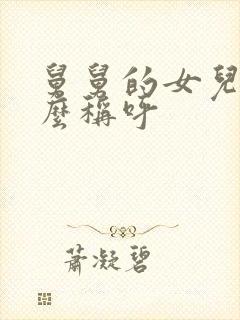 舅舅的女兒
麼稱呼
蕭凝碧